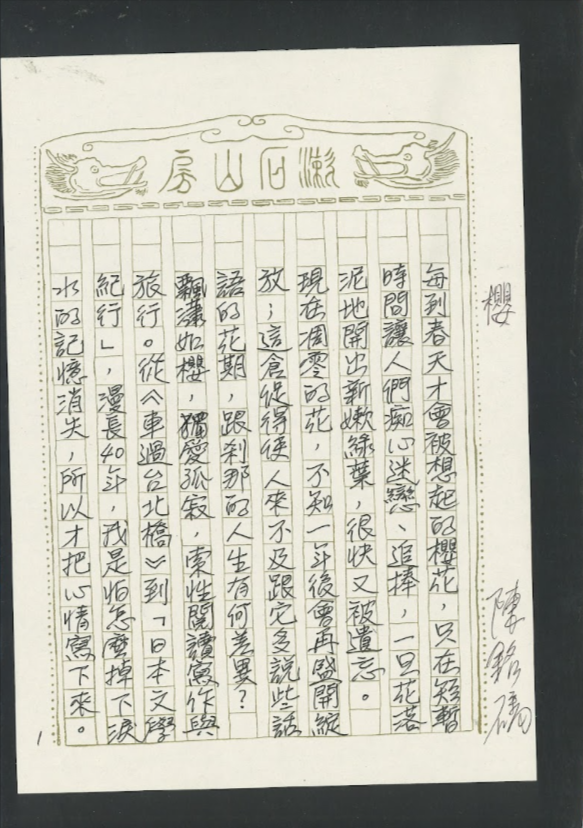 漱石山房
櫻
陳銘磻
每到春天才會被想起的櫻花，只在短暫
時間讓人們痴心迷戀、追捧，一旦花落
泥地開出新嫩綠葉，很快又被遺忘。
現在凋零的花，不知一年後會再盛開綻
放；這倉促得使人來不及跟它多說些話
語的花期，跟刹那的人生有何差異？
飄瀟如櫻，獨愛孤寂，索性閱讀寫作與
旅行。從《車過台北橋》到「日本文學
紀行」，漫長40年，我是怕怎麼掉下淚
水的記憶消失，所以才把心情寫下來。
1